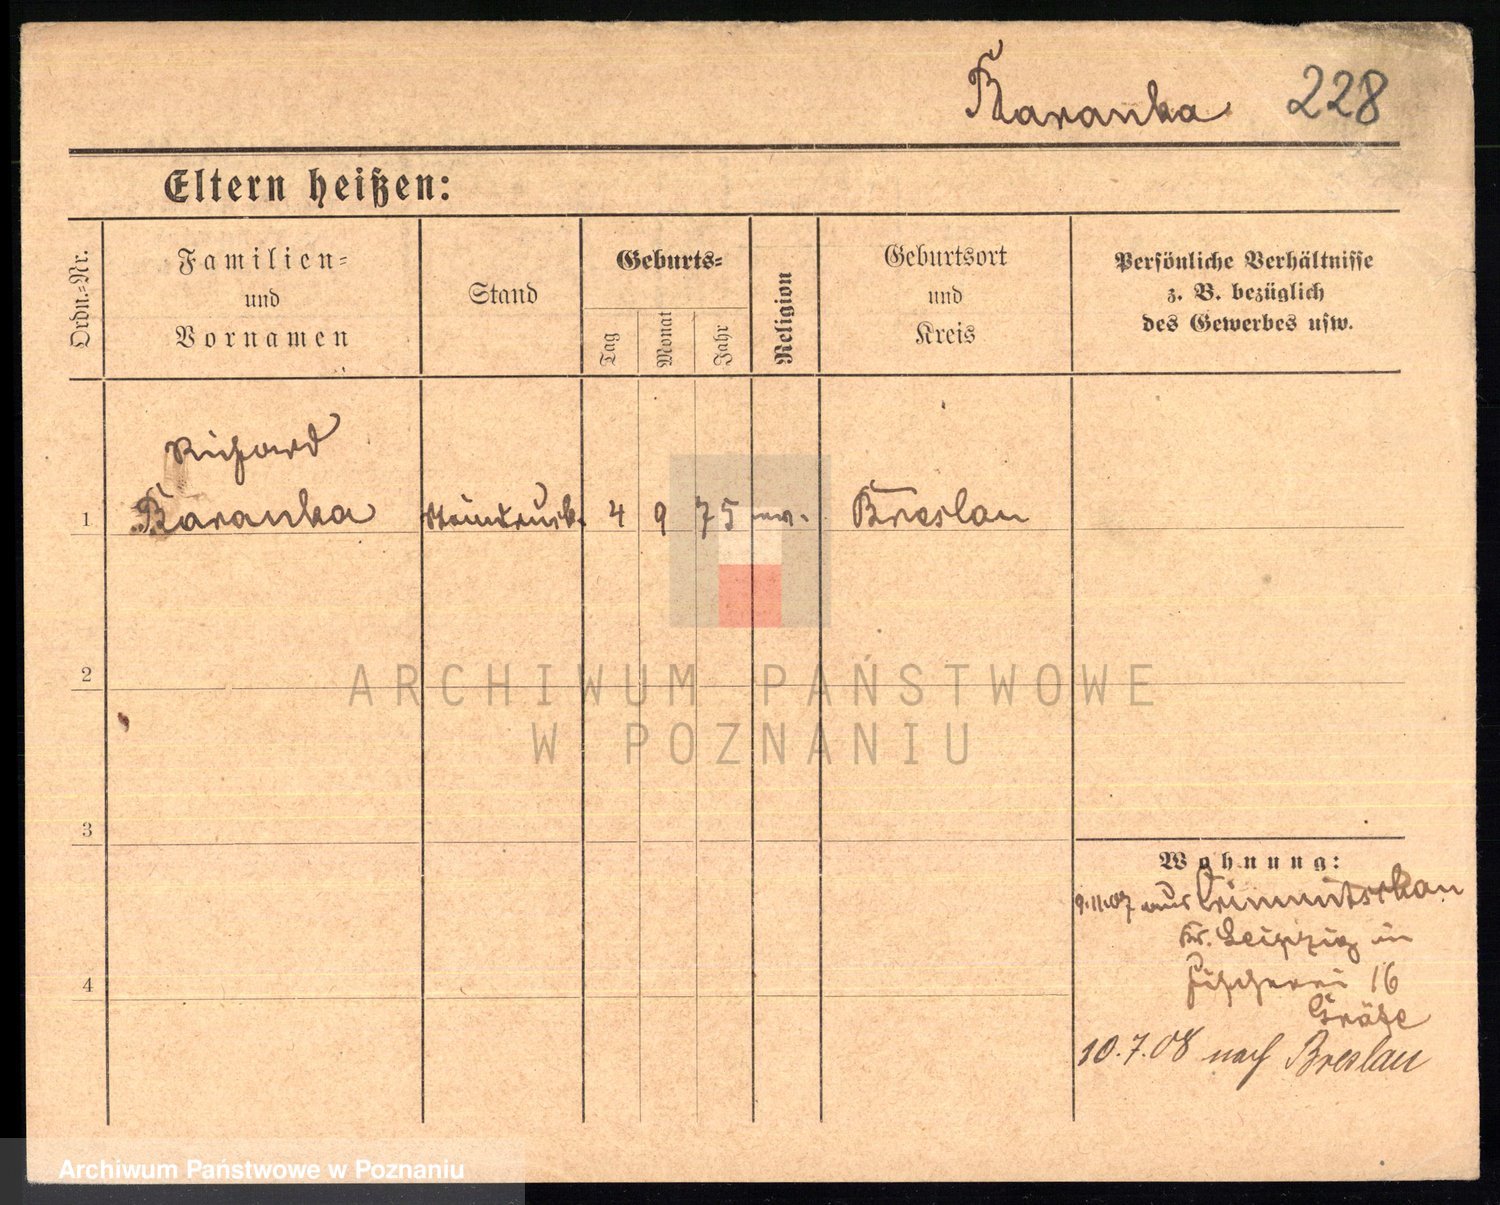 Baranka 228
Eltern heißen:
Ordn.-Nr.
Familien-
und
Vornamen
Stand
Geburts-
Tag
Monat
Jahr
Religion
Geburtsort
und
Kreis
Persönliche Verhältnisse
z. B. bezüglich
des Gewerbes usw.
Richard
1 Baranka Steindruck. 4 9 75 Breslau
2
3
4
Wohnung:
9.11.07 aus Crimmitschau
Leipzig in
Fischerei 16
Gräse
10.7.08 nach Breslau
ARCHIWUM PAŃSTWOWE
W POZNANIU
Archiwum Państwowe w Poznaniu